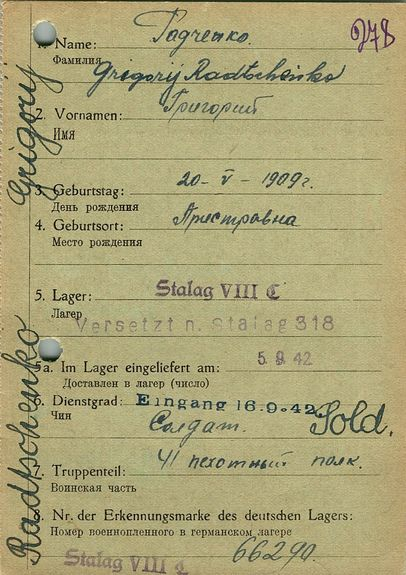 278
1. Name: Радченко.
Фамилия
Grigorij Radtschenko
2. Vornamen: Григорий
Имя
3. Geburtstag: 20-V-1909г.
День рождения
4. Geburtsort:
Место рождения
5. Lager: Stalag VIII C
Лагер
Versetzt n. Stalag 318
5a. Im Lager eingeliefert am: 5.9.42
Доставлен в лагер (число)
6. Dienstgrad: Eingang 16.9.42
Чин Солдат. Sold.
7. Truppenteil: 41 пехотный полк.
Воинская часть
8. Nr. der Erkennungsmarke des deutschen Lagers:
Номер военнопленного в германском лагере
Stalag VIII C 66290.
Radtschenko Grigorij